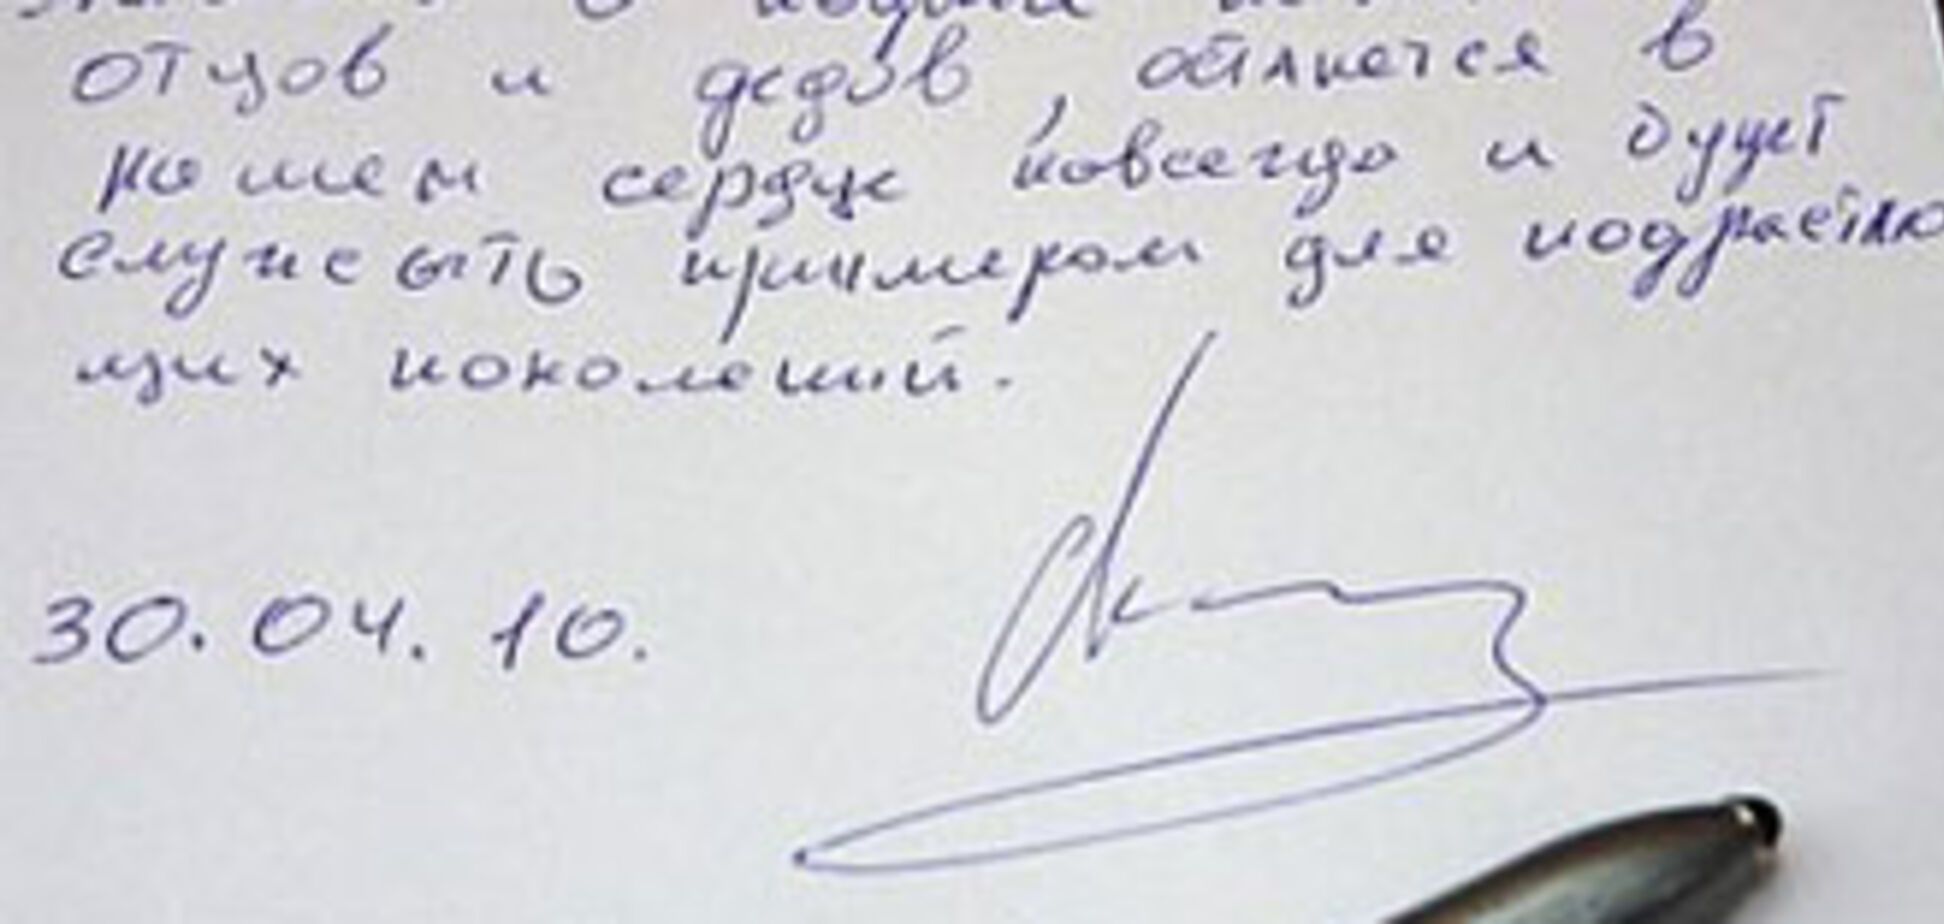 отцов и дедов, останется в
нашем сердце навсегда и будет
служыть примером для подрастаю
щих поколений.
30.04.10.